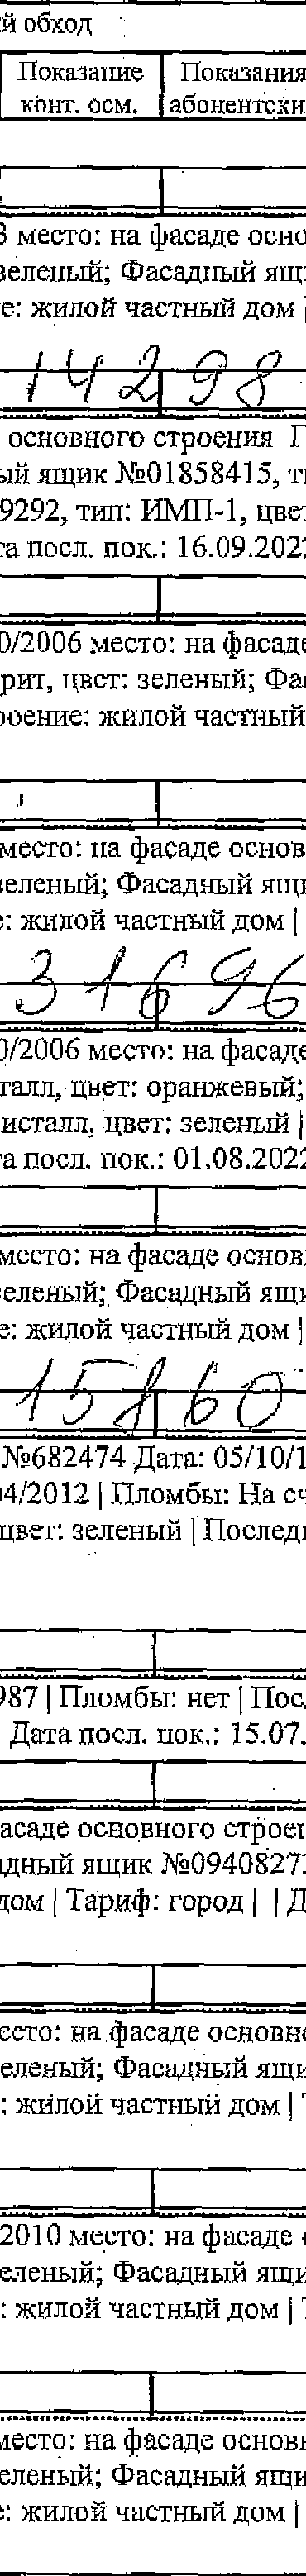 й обход
Показание Показания
конт. осм. абонентски
3 место: на фасаде осно
зеленый; Фасадный ящ
е: жилой частный дом |
14298
основного строения Г
ый ящик №01858415, ти
9292, тип: ИМП-1, цве
та посл. пок.: 16.09.202
0/2006 место: на фасаде
рит, цвет: зеленый; Фа
роение: жилой частный
место: на фасаде основ
зеленый; Фасадный ящи
е: жилой частный дом |
31696
0/2006 место: на фасаде
талл, цвет: оранжевый;
исталл, цвет: зеленый |
та посл. пок.: 01.08.2022
место: на фасаде основ
зеленый; Фасадный ящи
е: жилой частный дом |
15860
№682474 Дата: 05/10/1
04/2012 | Пломбы: На сч
цвет: зеленый | Последн
987 | Пломбы: нет | Пос
Дата посл. пок.: 15.07.
асаде основного строен
адный ящик №0940827
дом | Тариф: город | | Д
есто: на фасаде основн
еленый; Фасадный ящи
: жилой частный дом | Т
2010 место: на фасаде
еленый; Фасадный ящи
: жилой частный дом |
место: на фасаде основн
еленый; Фасадный ящи
е: жилой частный дом |